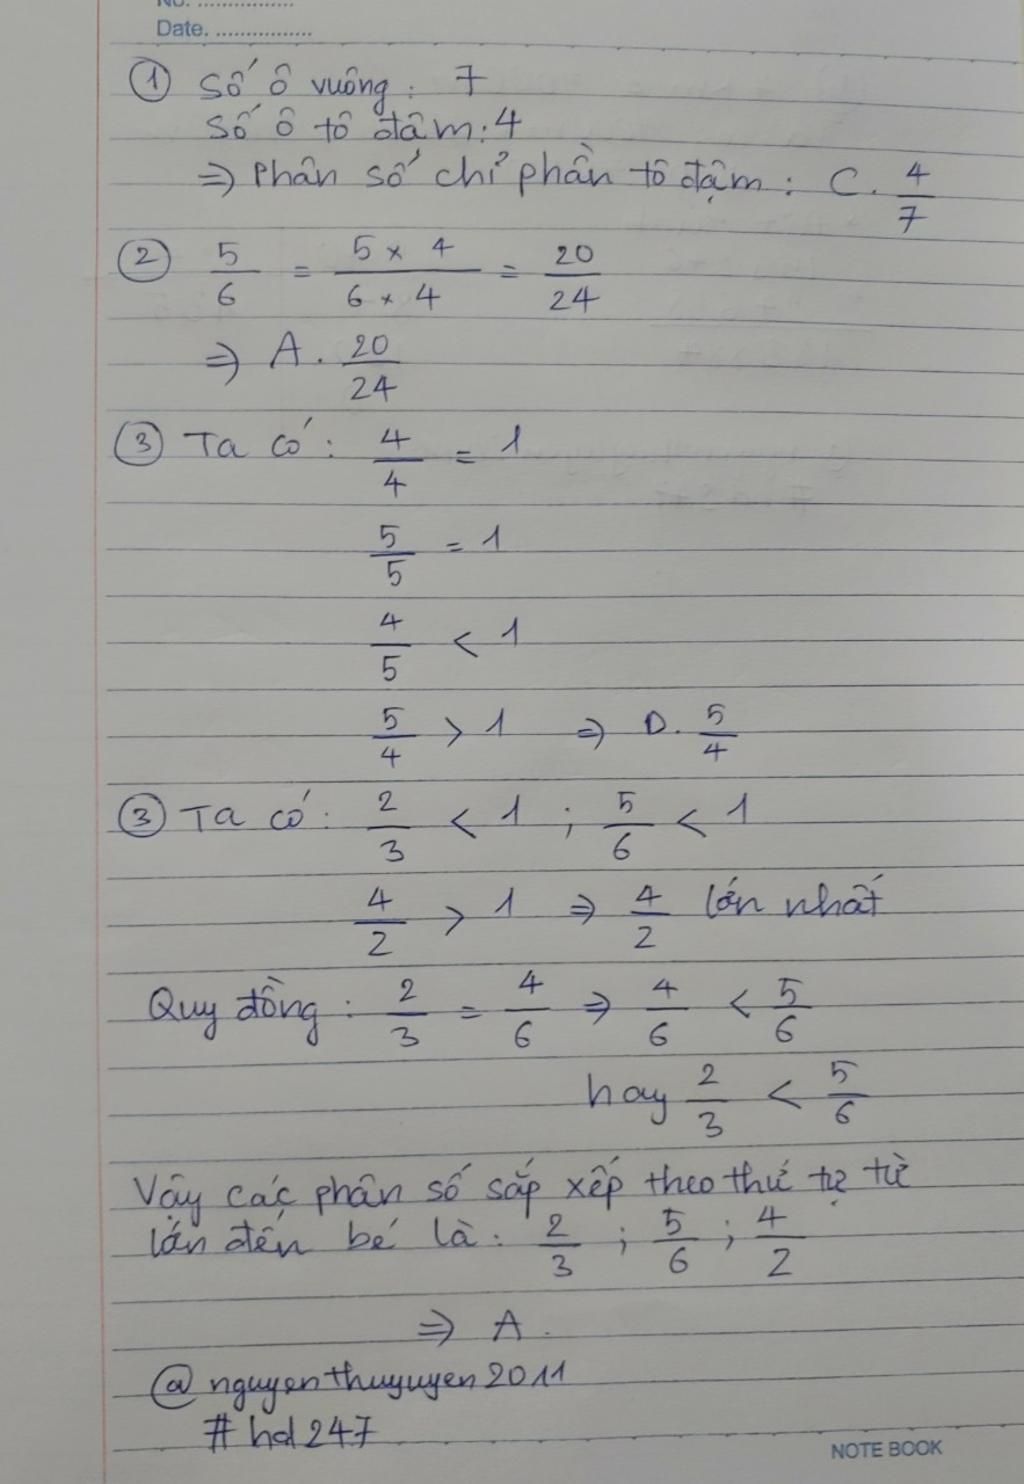 No. ................
Date. ................
① Số ô vuông: 7
Số ô tô đâm: 4
=> Phân số chỉ phần tô đậm: C. 4/7
② 5/6 = (5 x 4)/(6 x 4) = 20/24
=> A. 20/24
③ Ta có: 4/4 = 1
5/5 = 1
4/5 < 1
5/4 > 1 => D. 5/4
③ Ta có: 2/3 < 1 ; 5/6 < 1
4/2 > 1 => 4/2 lớn nhất
Quy đồng: 2/3 = 4/6 => 4/6 < 5/6
hay 2/3 < 5/6
Vậy các phân số sắp xếp theo thứ tự từ
lớn đến bé là: 2/3 ; 5/6 ; 4/2
=> A.
@nguyenthuyuyen2011
#hd247
NOTE BOOK